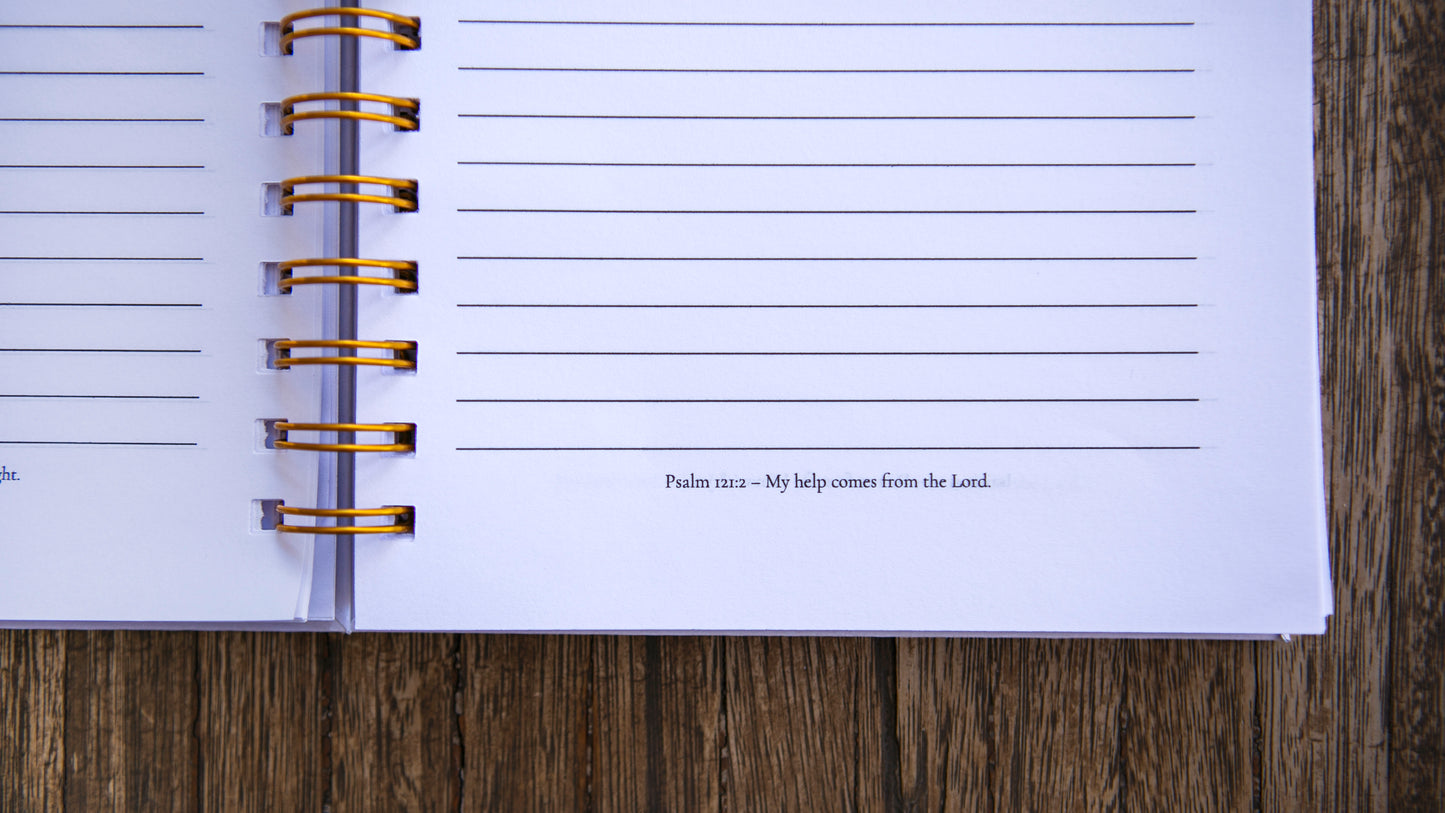 ght.
Psalm 121:2 – My help comes from the Lord.